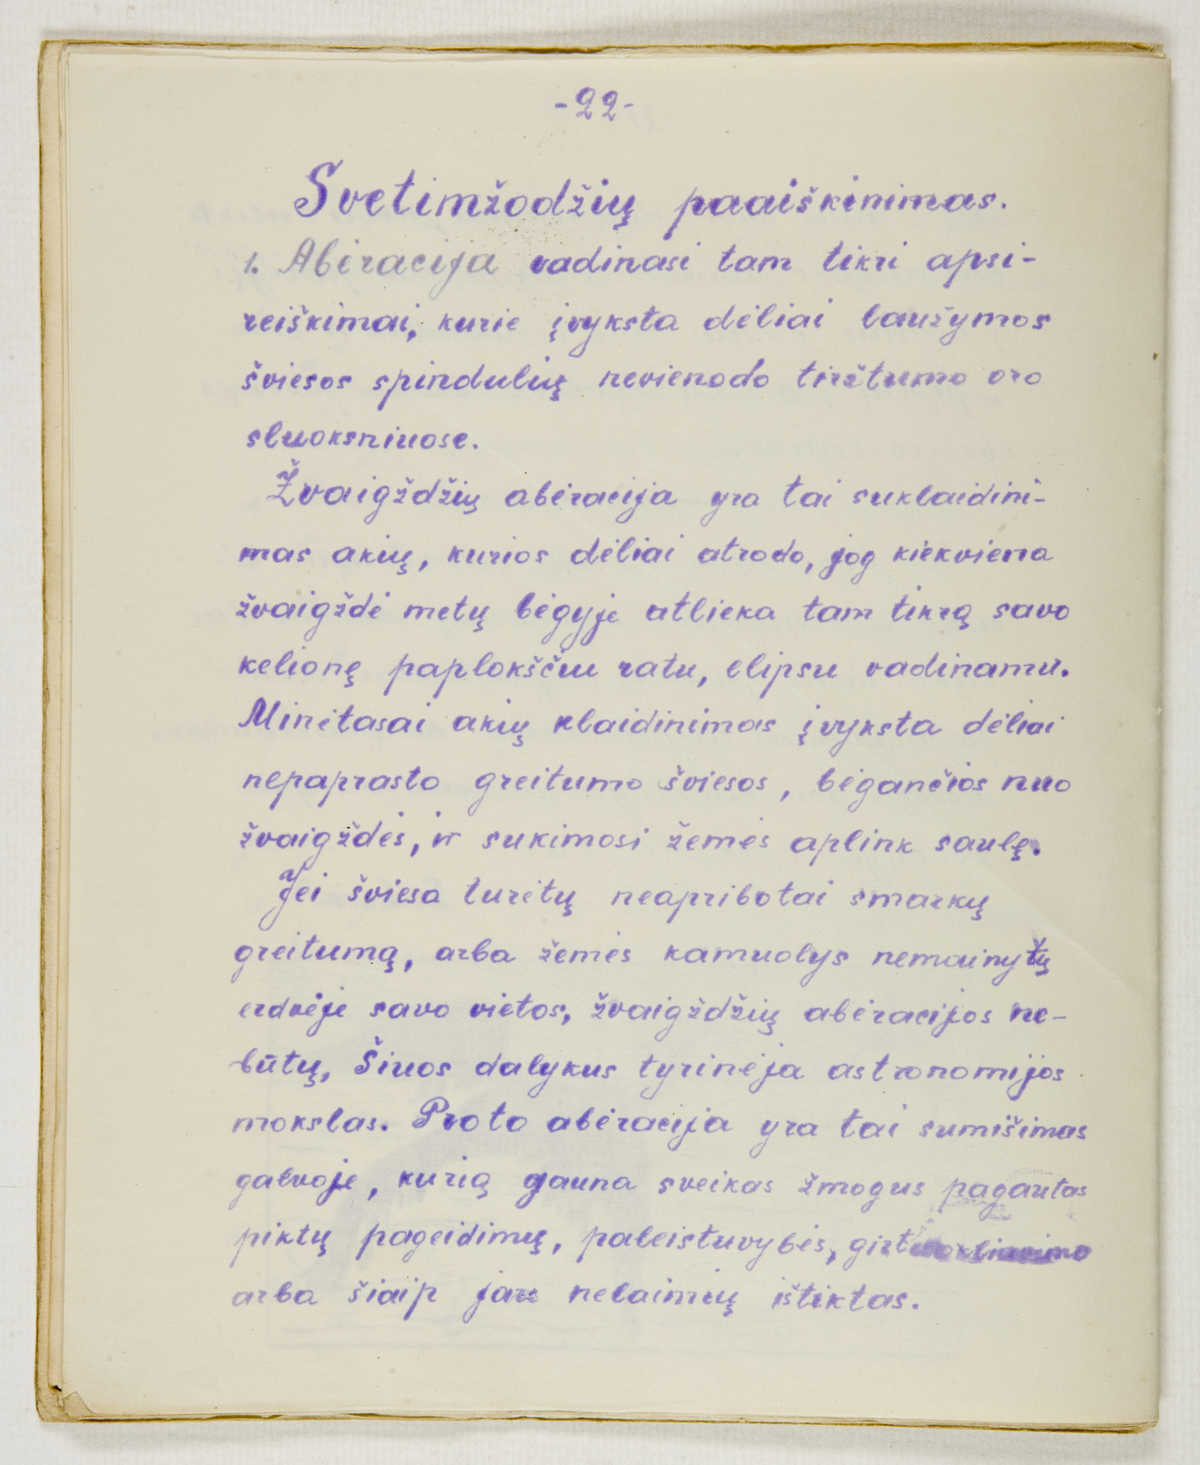 -22-
Svetimžodžių paaiškinimas.
1. Abėracija vadinasi tam tikri apsi-
reiškimai, kurie įvyksta dėliai laužymos
šviesos spindulių nevienodo tirštumo oro
sluoksniuose.
Žvaigždžių abėracija yra tai suklaidini-
mas akių, kurios dėliai atrodo, jog kiekviena
žvaigždė metų bėgyje atlieka tam tikrą savo
kelionę paplokščiu ratu, elipsu vadinamu.
Minėtasai akių klaidinimas įvyksta dėliai
nepaprasto greitumo šviesos, bėgančios nuo
žvaigždės, ir sukimosi žemės aplink saulę.
Jei šviesa turėtų neapribotai smarkų
greitumą, arba žemės kamuolys nemainytų
erdvėje savo vietos, žvaigždžių abėracijos ne-
būtų, Šiuos dalykus tyrinėja astronomijos
mokslas. Proto abėracija yra tai sumišimas
galvoje, kurią gauna sveikas žmogus pagautas
piktų pageidimų, paleistuvybės, girtuokliavimo
arba šiaip jau nelaimių ištiktas.